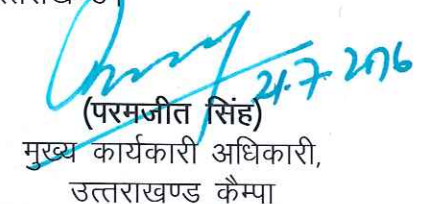 21.7.2016
(परमजीत सिंह)
मुख्य कार्यकारी अधिकारी,
उत्तराखण्ड कैम्पा